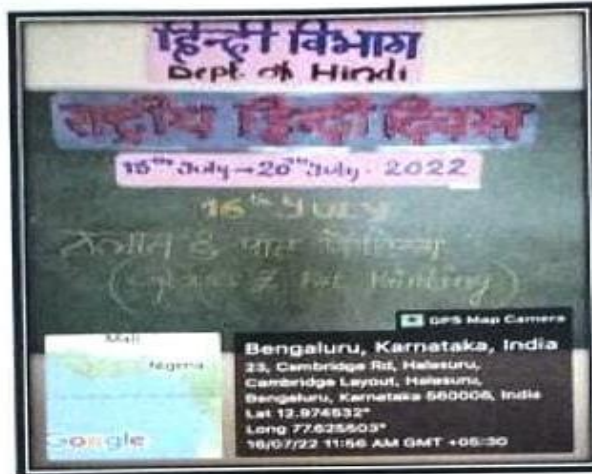 हिन्दी विभाग
Dept of Hindi
राष्ट्रीय हिन्दी दिवस
15th July → 20th July. 2022
16th July
Painting)
GPS Map Camera
Mali
Nigeria
Google
Bengaluru, Karnataka, India
23, Cambridge Rd, Halasuru,
Cambridge Layout, Halasuru,
Bengaluru, Karnataka 560008, India
Lat 12.974532°
Long 77.625503°
16/07/22 11:56 AM GMT +05:30